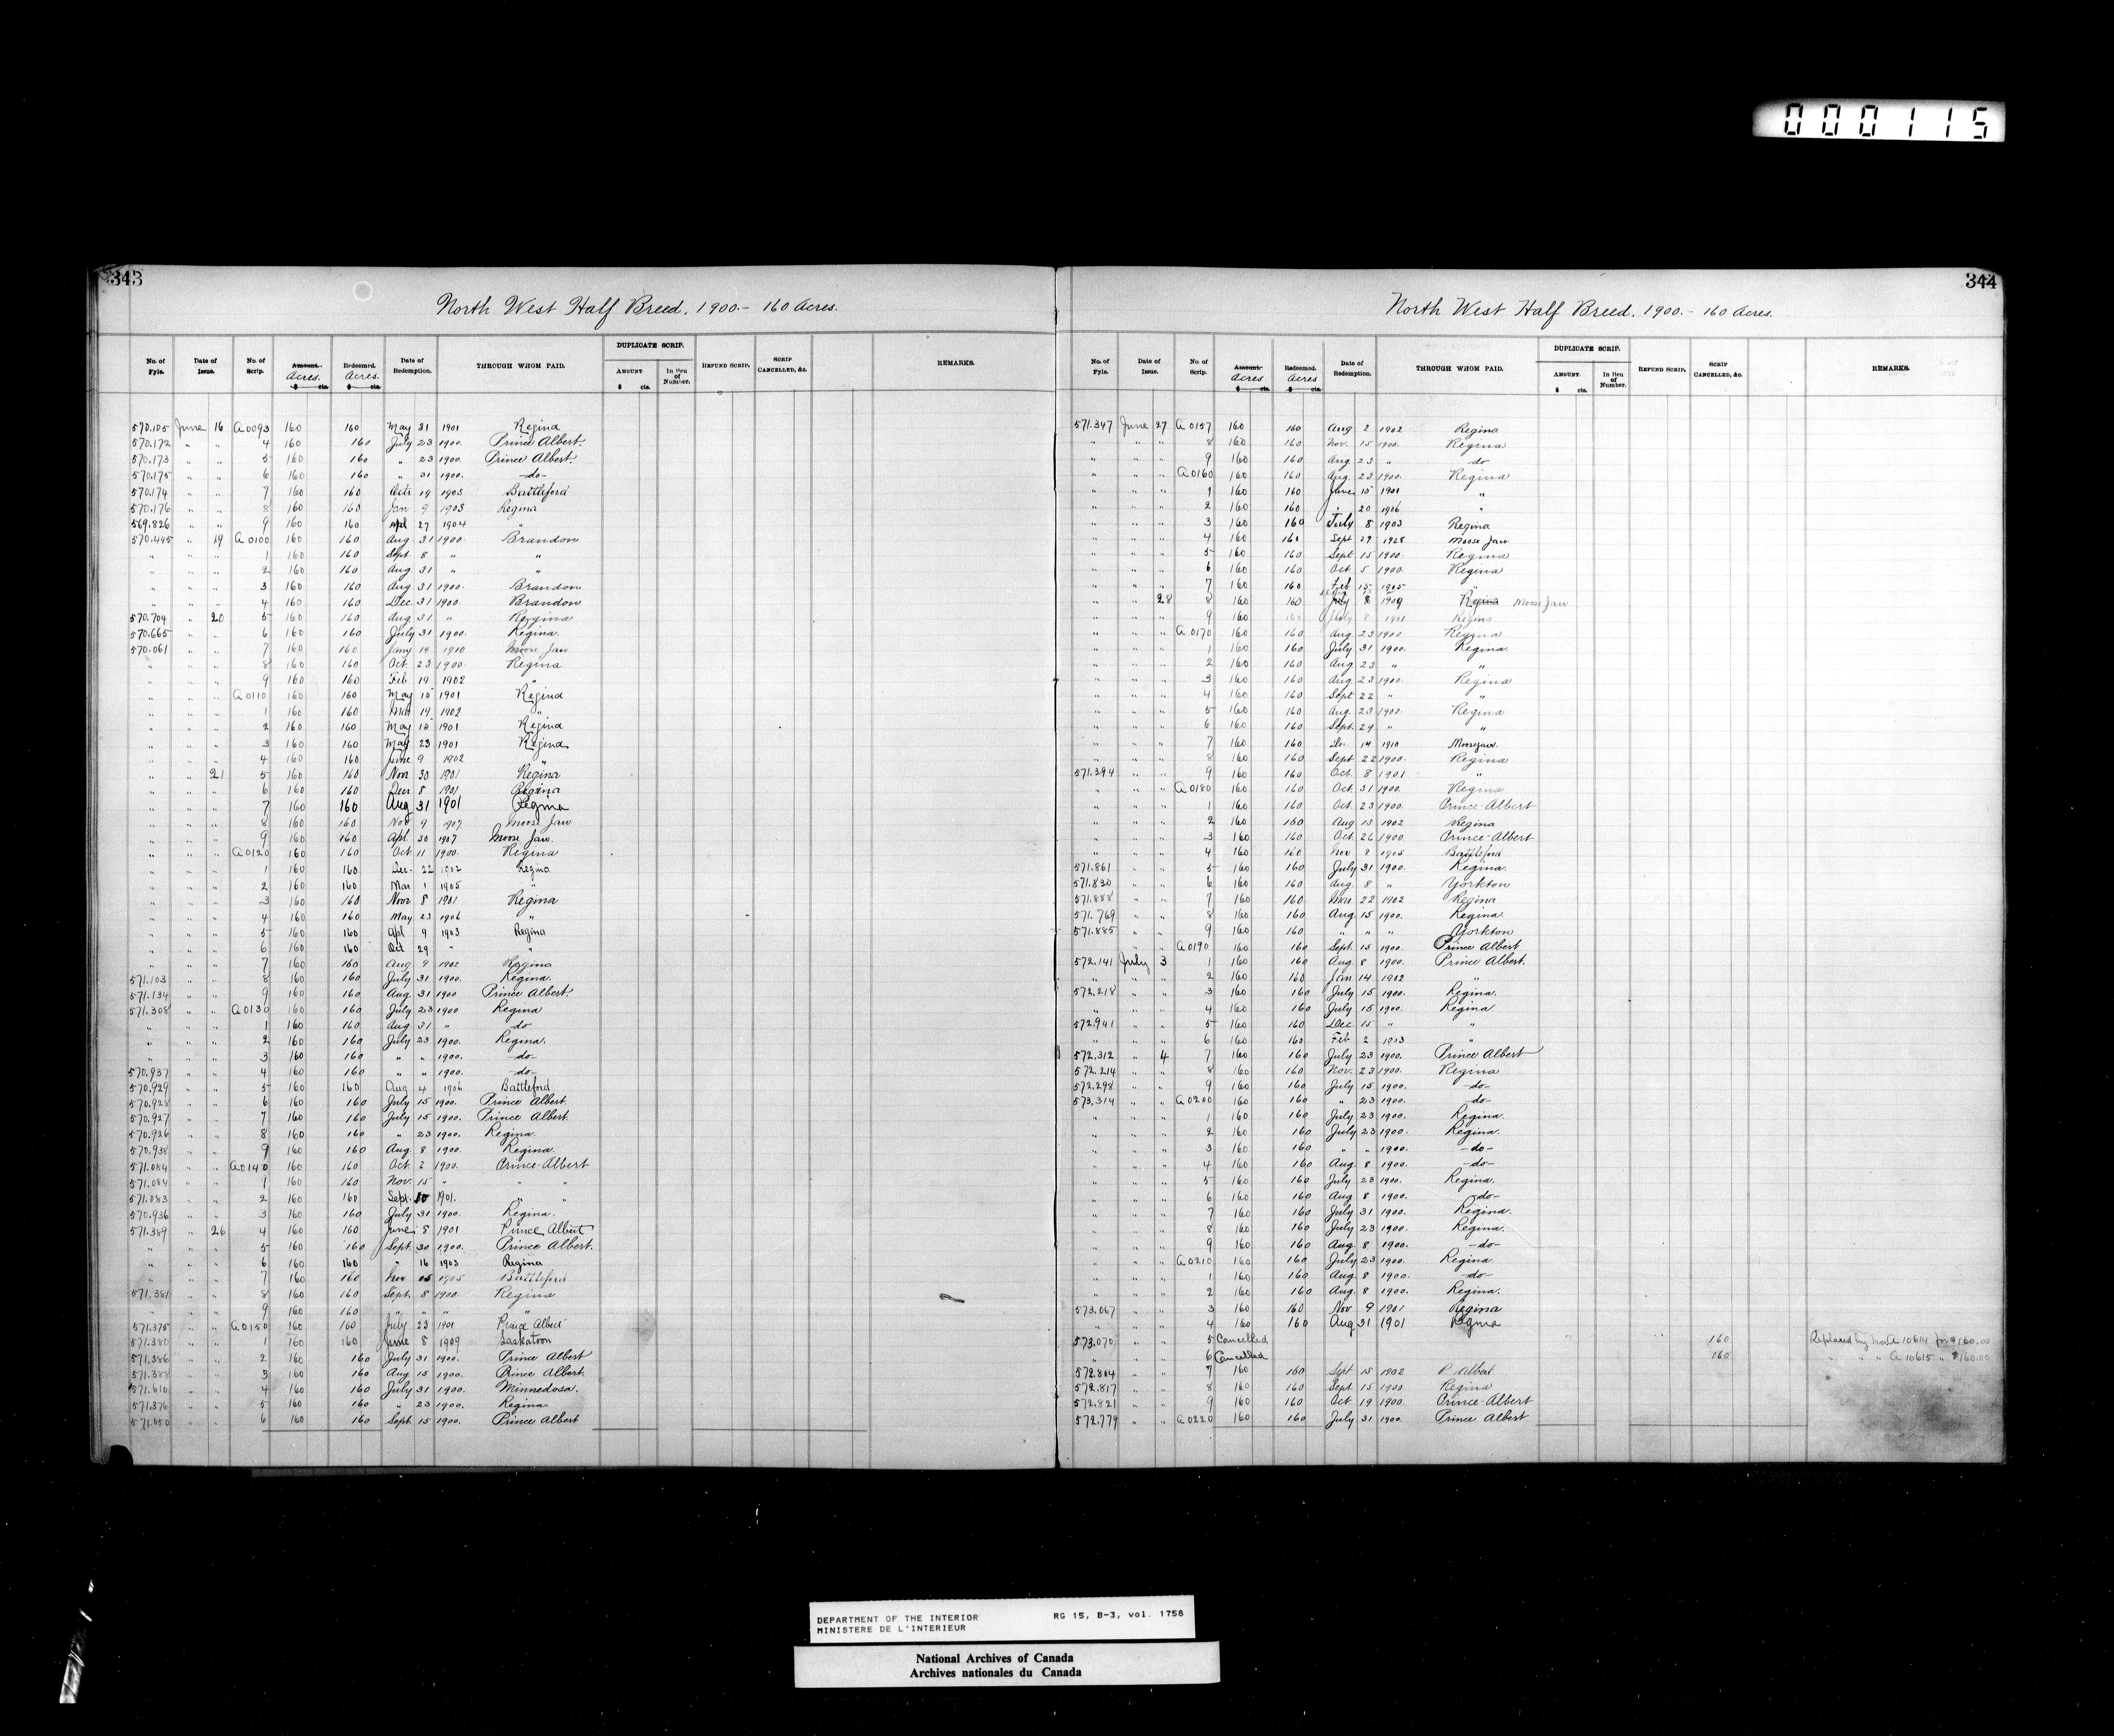 000115
343
North West Half Breed. 1900.- 160 Acres.
No. of Fyle. Date of Issue. No. of Scrip. Amount. Acres. $ cts. Redeemed. Acres. $ cts. Date of Redemption. THROUGH WHOM PAID. DUPLICATE SCRIP. AMOUNT $ cts. In lieu of Number. REFUND SCRIP. SCRIP CANCELLED, &c. REMARKS.
570.105 June 16 A0093 160 160 May 31 1901 Regina
570.172 " " 4 160 160 July 23 1900. Prince Albert.
570.173 " " 5 160 160 " 23 1900. Prince Albert.
570.175 " " 6 160 160 " 31 1900. -do-
570.174 " " 7 160 160 Oct 19 1905 Battleford
570.176 " " 8 160 160 Jan 9 1903 Regina
569.826 " " 9 160 160 Apl 27 1904 "
570.445 " 19 A0100 160 160 Aug. 31 1900. Brandon
" " " 1 160 160 Sept. 8 " "
" " " 2 160 160 Aug 31 " "
" " " 3 160 160 Aug 31 1900. Brandon
" " " 4 160 160 Dec. 31 1900. Brandon
570.704 " 20 5 160 160 Aug. 31 " Regina
570.665 " " 6 160 160 July 31 1900. Regina.
570.061 " " 7 160 160 Jany 14 1910 Moose Jaw
" " " 8 160 160 Oct. 23 1900. Regina
" " " 9 160 160 Feb 19 1902 "
" " " A0110 160 160 May 15 1901 Regina
" " " 1 160 160 Mar 19 1902 "
" " " 2 160 160 May 15 1901 Regina
" " " 3 160 160 May 23 1901 Regina
" " " 4 160 160 June 9 1902 "
" " 21 5 160 160 Nov 30 1901 Regina
" " " 6 160 160 Dec 8 1901 Regina
" " " 7 160 160 Aug 31 1901 Regina
" " " 8 160 160 Nov 9 1907 Moose Jaw
" " " 9 160 160 Apl. 30 1907 Moose Jaw.
" " " A0120 160 160 Oct. 11 1900. Regina
" " " 1 160 160 Dec. 22 1902 Regina
" " " 2 160 160 Mar 1 1905 "
" " " 3 160 160 Nov 8 1901 Regina
" " " 4 160 160 May 23 1906 "
" " " 5 160 160 Apl 9 1903 Regina
" " " 6 160 160 Oct 29 " "
" " " 7 160 160 Aug 9 1902 Regina
571.103 " " 8 160 160 July 31 1900. Regina.
571.134 " " 9 160 160 Aug. 31 1900 Prince Albert.
571.308 " " A0130 160 160 July 23 1900 Regina
" " " 1 160 160 Aug. 31 " do
" " " 2 160 160 July 23 1900. Regina.
" " " 3 160 160 " " 1900. -do-
570.937 " " 4 160 160 " " 1900. -do-
570.929 " " 5 160 160 Aug 4 1906 Battleford
570.928 " " 6 160 160 July 15 1900. Prince Albert.
570.927 " " 7 160 160 July 15 1900. Prince Albert
570.926 " " 8 160 160 " 23 1900. Regina.
570.938 " " 9 160 160 Aug. 8 1900. Regina.
571.084 " " A0140 160 160 Oct. 2 1900. Prince-Albert
571.084 " " 1 160 160 Nov. 15 " " "
571.083 " " 2 160 160 Sept. 30 1901. " "
570.936 " " 3 160 160 July 31 1900. Regina.
571.389 " 26 4 160 160 June 8 1901 Prince Albert
" " " 5 160 160 Sept. 30 1900. Prince Albert.
" " " 6 160 160 " 16 1903 Regina
" " " 7 160 160 Nov 15 1905 Battleford
571.381 " " 8 160 160 Sept. 8 1900 Regina
" " " 9 160 160 " " " "
571.375 " " A0150 160 160 July 23 1901 Prince Albert
571.380 " " 1 160 160 June 8 1909 Saskatoon
571.386 " " 2 160 160 July 31 1900. Prince Albert
571.388 " " 3 160 160 Aug. 15 1900. Prince Albert.
571.610 " " 4 160 160 July 31 1900. Minnedosa.
571.376 " " 5 160 160 " 23 1900. Regina.
571.050 " " 6 160 160 Sept. 15 1900. Prince Albert
344
North West Half Breed. 1900.- 160 Acres.
No. of Fyle. Date of Issue. No. of Scrip. Amount. Acres $ cts. Redeemed. Acres $ cts. Date of Redemption. THROUGH WHOM PAID. DUPLICATE SCRIP. AMOUNT. $ cts. In lieu of Number. REFUND SCRIP. SCRIP CANCELLED, &c. REMARKS.
571.347 June 27 A0157 160 160 Aug 2 1902 Regina
" " " 8 160 160 Nov. 15 1900. Regina
" " " 9 160 160 Aug. 23 " -do-
" " " A0160 160 160 Aug. 23 1900. Regina
" " " 1 160 160 June 15 1901 "
" " " 2 160 160 " 20 1906 "
" " " 3 160 160 July 8 1903 Regina
" " " 4 160 160 Sept 29 1928 Moose Jaw
" " " 5 160 160 Sept. 15 1900. Regina
" " " 6 160 160 Oct. 5 1900. Regina
" " " 7 160 160 Feb 15 1905 "
" " 28 8 160 160 July 8 1909 Regina Moose Jaw
" " " 9 160 160 July 8 1901 Regina
" " " A0170 160 160 Aug. 23 1900. Regina
" " " 1 160 160 July 31 1900. Regina.
" " " 2 160 160 Aug. 23 " "
" " " 3 160 160 Aug. 23 1900. Regina
" " " 4 160 160 Sept 22 " "
" " " 5 160 160 Aug. 23 1900. Regina
" " " 6 160 160 Sept. 29 " "
" " " 7 160 160 Dec 14 1910 Moosejaw.
" " " 8 160 160 Sept 22 1900. Regina
571.394 " " 9 160 160 Oct. 8 1901 "
" " " A0180 160 160 Oct. 31 1900. Regina
" " " 1 160 160 Oct. 23 1900. Prince-Albert
" " " 2 160 160 Aug 13 1902 Regina
" " " 3 160 160 Oct. 26 1900. Prince-Albert
" " " 4 160 160 Nov 8 1905 Battleford
571.861 " " 5 160 160 July 31 1900. Regina.
571.830 " " 6 160 160 Aug. 8 " Yorkton
571.888 " " 7 160 160 Mar 22 1902 Regina
571.769 " " 8 160 160 Aug. 15 1900. Regina.
571.885 " " 9 160 160 " " " Yorkton
" " A0190 160 160 Sept. 15 1900. Prince Albert
572.141 July 3 1 160 160 Aug. 8 1900. Prince Albert.
" " " 2 160 160 Jan 14 1902 "
572.218 " " 3 160 160 July 15 1900. Regina.
" " " 4 160 160 July 15 1900. Regina.
572.941 " " 5 160 160 Dec. 15 " "
" " " 6 160 160 Feb 2 1903 "
572.312 " 4 7 160 160 July 23 1900. Prince Albert
572.214 " " 8 160 160 Nov. 23 1900. Regina
572.298 " " 9 160 160 July 15 1900. -do-
573.314 " " A0200 160 160 " 23 1900. -do-
" " " 1 160 160 July 23 1900. Regina.
" " " 2 160 160 July 23 1900. Regina.
" " " 3 160 160 " " 1900. -do-
" " " 4 160 160 Aug. 8 1900. -do-
" " " 5 160 160 July 23 1900. Regina.
" " " 6 160 160 Aug 8 1900. -do-
" " " 7 160 160 July 31 1900. Regina.
" " " 8 160 160 July 23 1900. Regina.
" " " 9 160 160 Aug 8 1900. -do-
" " " A0210 160 160 July 23 1900. Regina.
" " " 1 160 160 Aug. 8 1900. -do-
" " " 2 160 160 Aug. 8 1900. Regina.
573.067 " " 3 160 160 Nov 9 1901 Regina
" " " 4 160 160 Aug 31 1901 Regina
573.070 " " 5 Cancelled " 160 Replaced by No. A 10614 for $160.00
" " " 6 Cancelled 160 " " " A 10615 " $160.00
572.804 " " 7 160 160 Sept 15 1902 P. Albert
572.817 " " 8 160 160 Sept. 15 1900 Regina
572.821 " " 9 160 160 Oct. 19 1900 Prince-Albert
572.779 " " A0220 160 160 July 31 1900. Prince Albert
DEPARTMENT OF THE INTERIOR RG 15, B-3, vol. 1758
MINISTERE DE L'INTERIEUR
National Archives of Canada
Archives nationales du Canada